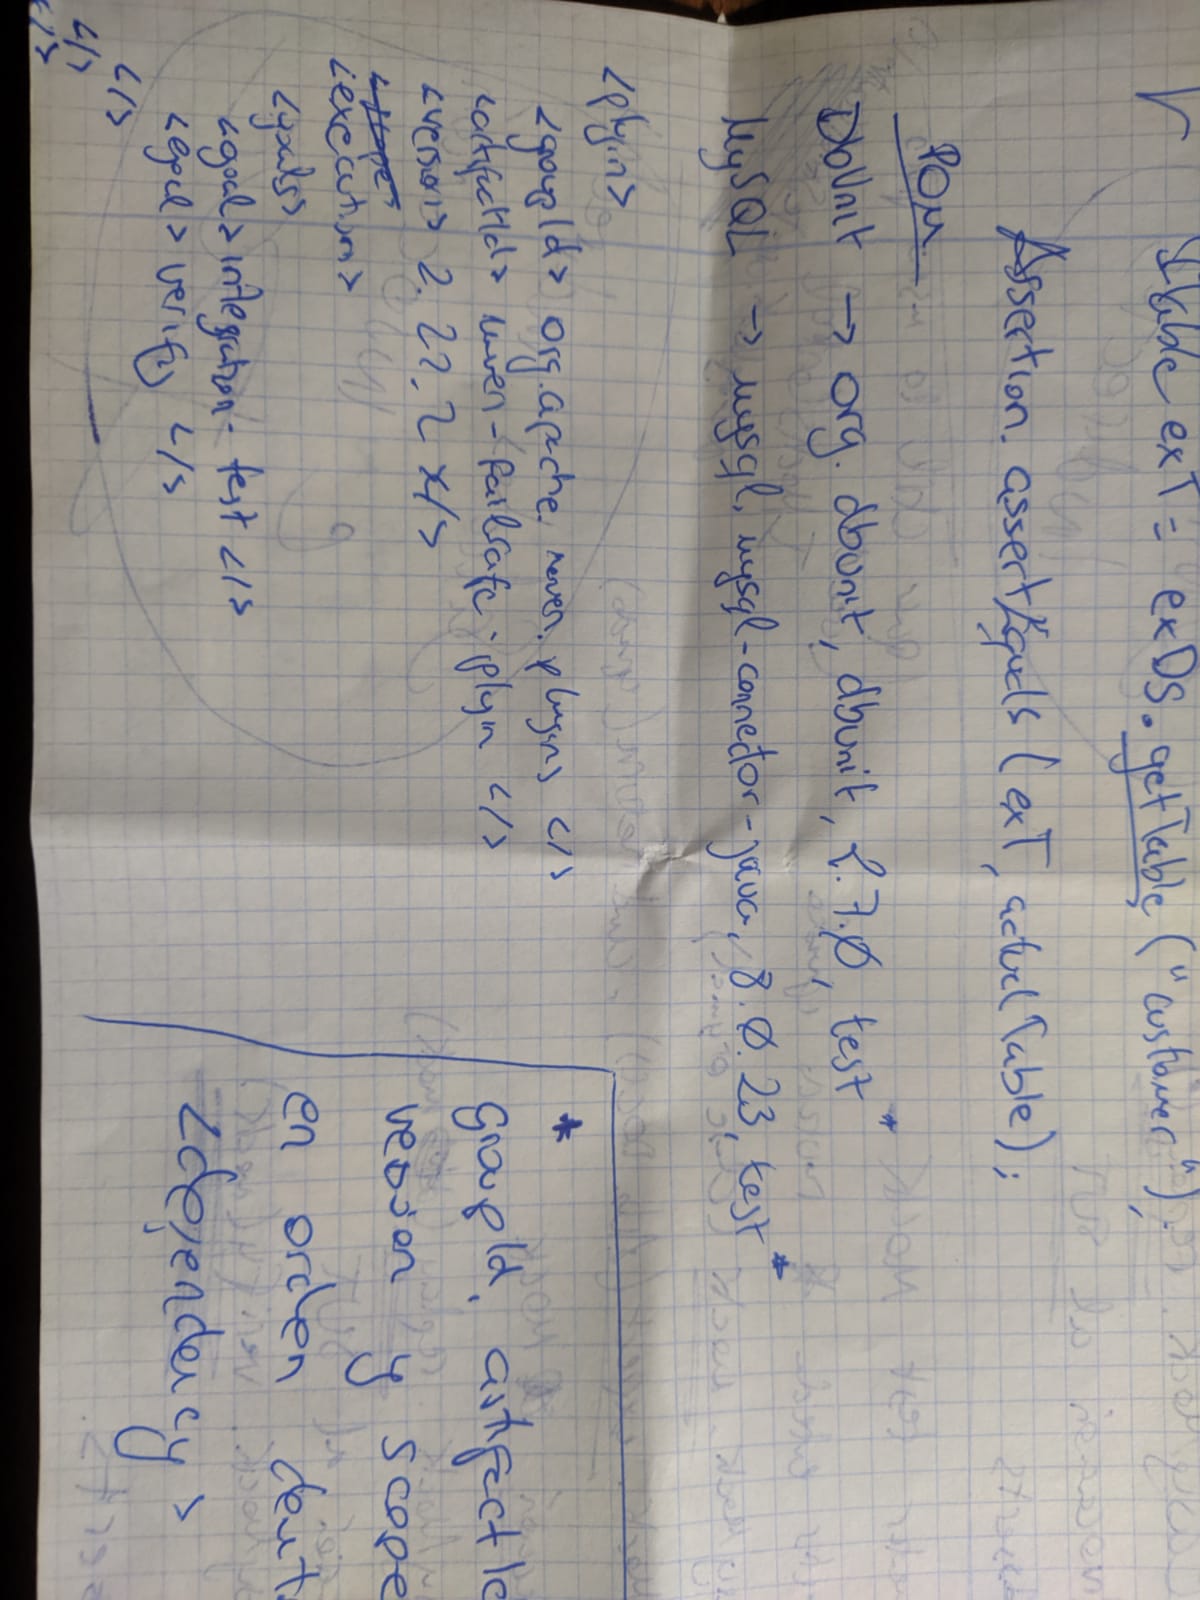 ITable exT = exDS.getTable ("customer");
Assertion.assertEquals (exT, actualTable);
POM
DbUnit → org.dbunit, dbunit, 2.7.0, test*
MySQL → mysql, mysql-connector-java, 8.0.23, test*
<plugin>
<groupId> org.apache.maven.plugins </>
<artifactId> maven-failsafe-plugin </>
<version> 2.22.2 </>
<scope>
<execution>
<goals>
<goal> integration-test </>
<goal> verify </>
</>
</>
</>
*
groupId, artifactId
version y scope
en orden dentr
<dependency>